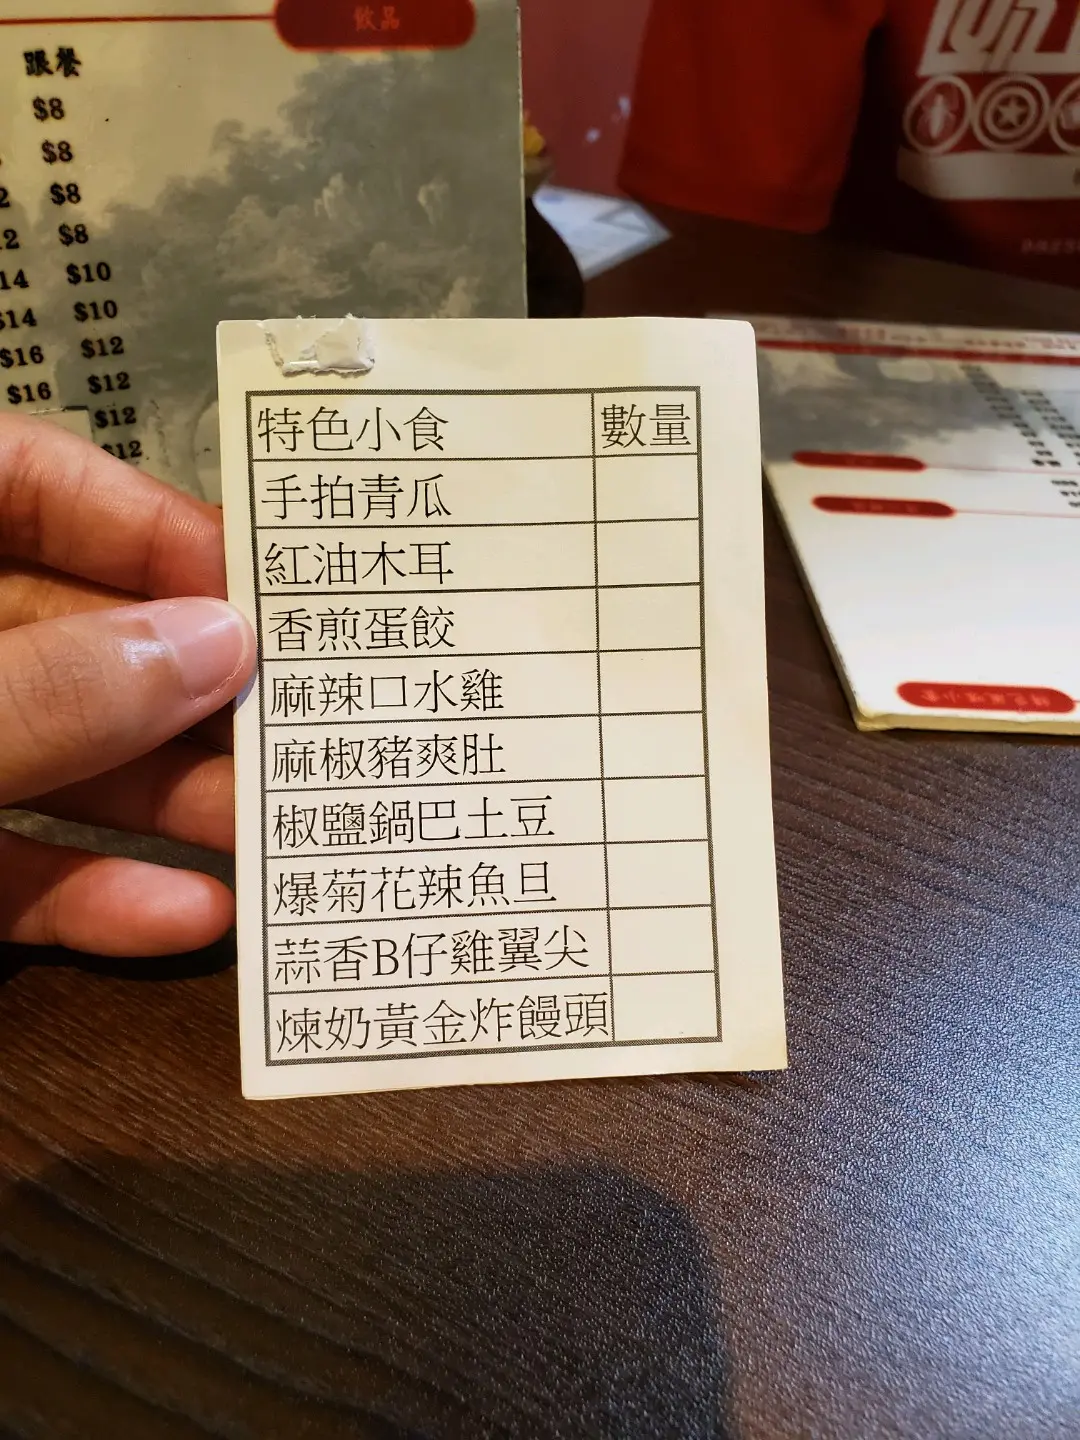 飲品
跟餐
$8
$8
2 $8
12 $8
14 $10
$14 $10
$16 $12
$16 $12
$12
$12
特色小食 數量
手拍青瓜
紅油木耳
香煎蛋餃
麻辣口水雞
麻椒豬爽肚
椒鹽鍋巴土豆
爆菊花辣魚旦
蒜香B仔雞翼尖
煉奶黃金炸饅頭